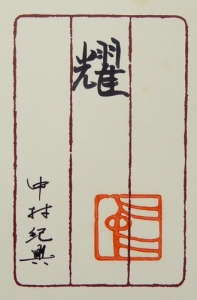 耀
中村紀興